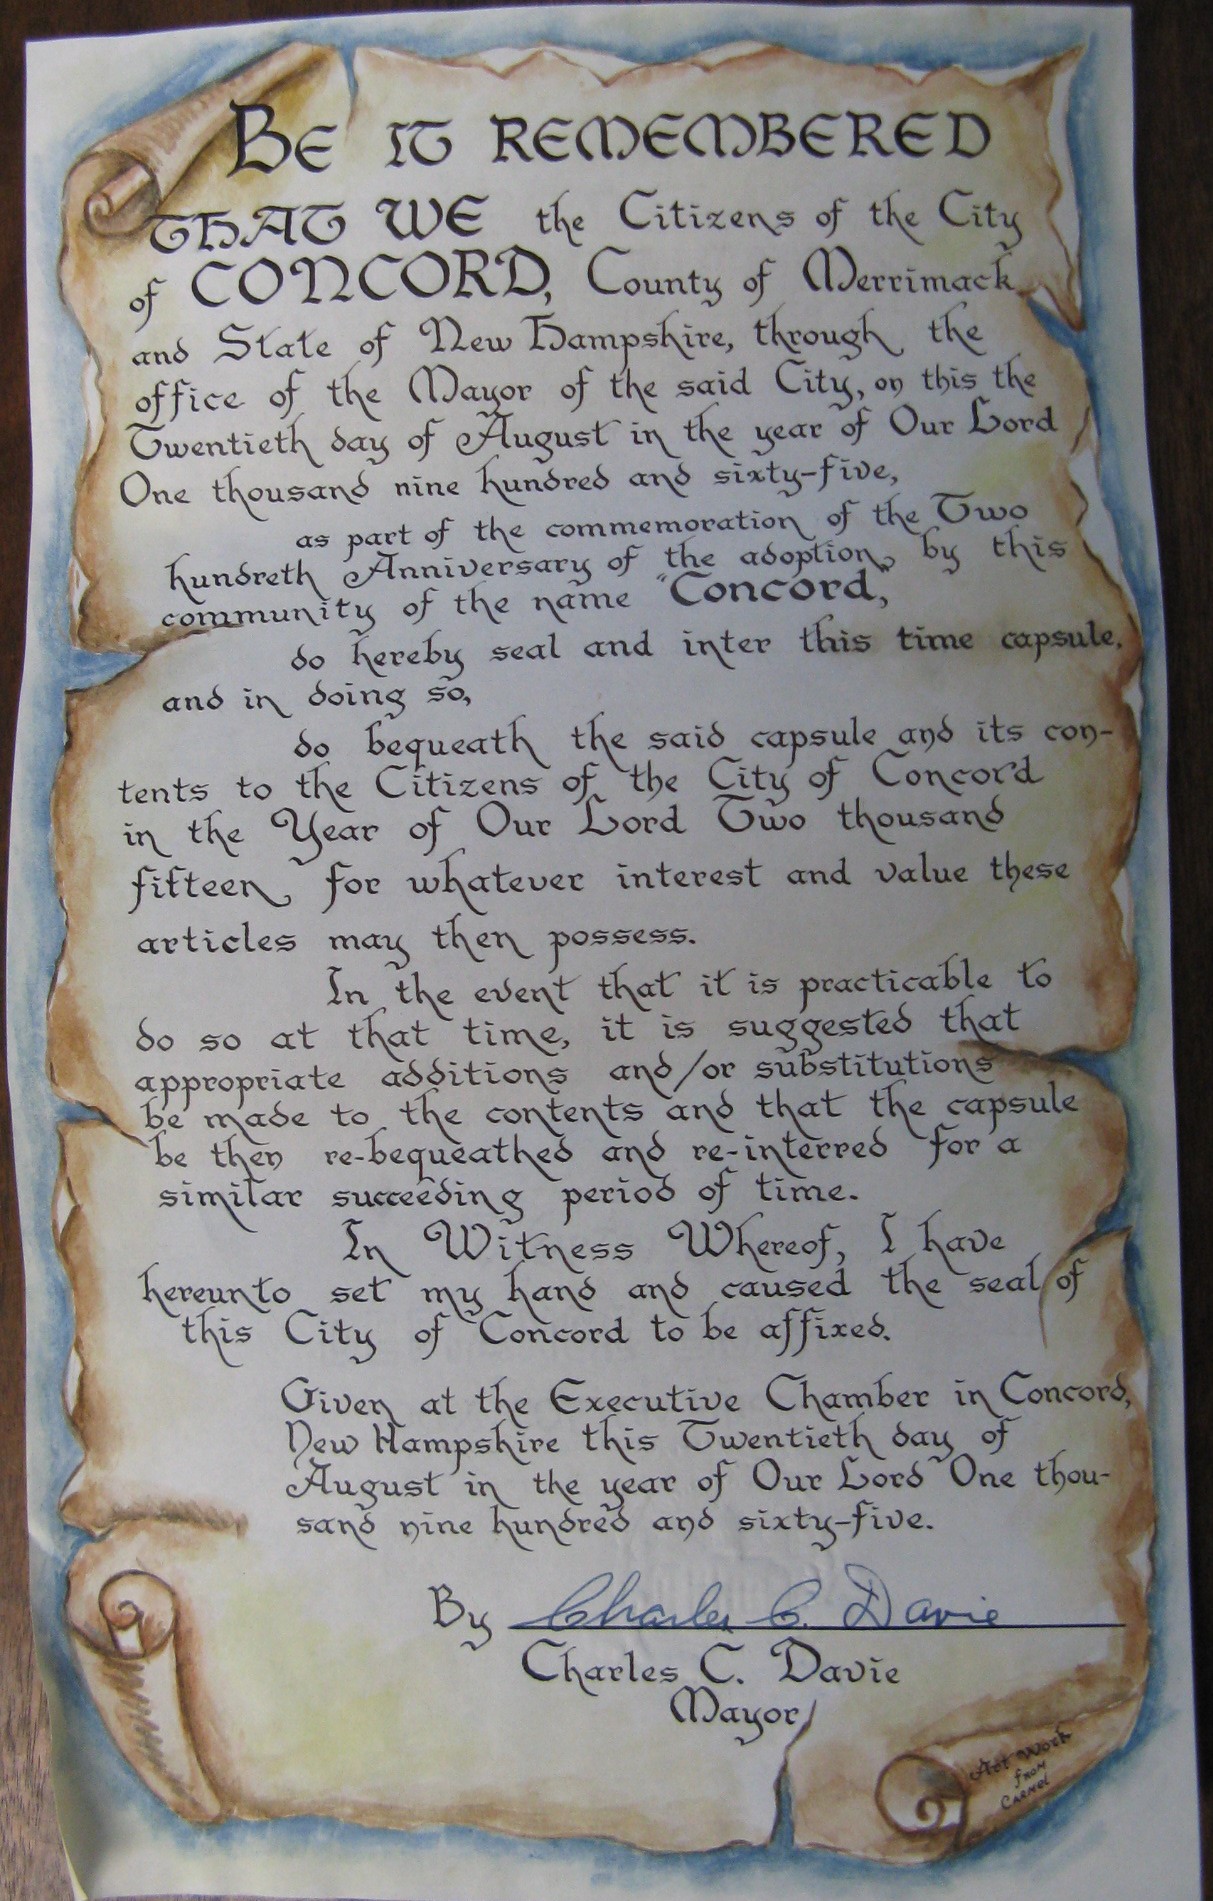 BE IT REMEMBERED
THAT WE the Citizens of the City
of CONCORD, County of Merrimack
and State of New Hampshire, through the
office of the Mayor of the said City, on this the
Twentieth day of August in the year of Our Lord
One thousand nine hundred and sixty-five,
as part of the commemoration of the Two
hundreth Anniversary of the adoption, by this
community of the name "Concord,"
do hereby seal and inter this time capsule,
and in doing so,
do bequeath the said capsule and its con-
tents to the Citizens of the City of Concord
in the Year of Our Lord Two thousand
fifteen, for whatever interest and value these
articles may then possess.
In the event that it is practicable to
do so at that time, it is suggested that
appropriate additions and/or substitutions
be made to the contents and that the capsule
be then re-bequeathed and re-interred for a
similar succeeding period of time.
In Witness Whereof, I have
hereunto set my hand and caused the seal of
this City of Concord to be affixed.
Given at the Executive Chamber in Concord,
New Hampshire this Twentieth day of
August in the year of Our Lord One thou-
sand nine hundred and sixty-five.
By Charles C. Davie
Charles C. Davie
Mayor
Art Work
from
Carmel